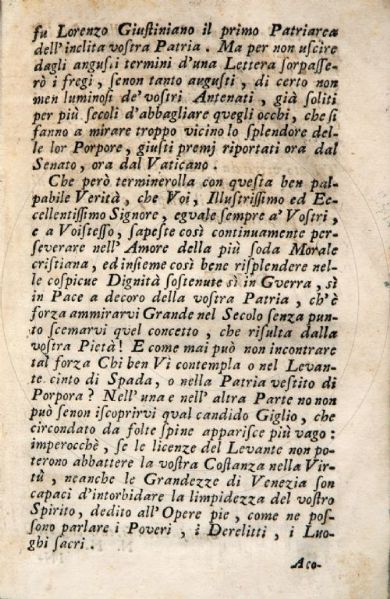 fu Lorenzo Giuſtiniano il primo Patriarca
dell' inclita voſtra Patria . Ma per non uſcire
dagli anguſti termini d'una Lettera ſorpaſſe-
rò i fregi , ſenon tanto auguſti , di certo non
men luminoſi de' voſtri Antenati , già ſoliti
per più ſecoli d'abbagliare quegli occhi , che ſi
fanno a mirare troppo vicino lo ſplendore del-
le lor Porpore , giuſti premj riportati ora dal
Senato , ora dal Vaticano .
Che però terminerolla con queſta ben pal-
pabile Verità , che Voi , Illuſtriſſimo ed Ec-
cellentiſſimo Signore , eguale ſempre a' Voſtri ,
e a Voiſteſſo , ſapeſte così continuamente per-
ſeverare nell' Amore della più ſoda Morale
criſtiana , ed inſieme così bene riſplendere nel-
le coſpicue Dignità ſoſtenute sì in Gverra , sì
in Pace a decoro della voſtra Patria , ch'è
forza ammirarvi Grande nel Secolo ſenza pun-
to ſcemarvi quel concetto , che riſulta dalla
voſtra Pietà ! E come mai può non incontrare
tal forza Chi ben Vi contempla o nel Levan-
te cinto di Spada , o nella Patria veſtito di
Porpora ? Nell' una e nell' altra Parte no non
può ſenon iſcoprirvi qual candido Giglio , che
circondato da folte ſpine appariſce più vago :
imperocchè , ſe le licenze del Levante non po-
terono abbattere la voſtra Coſtanza nella Vir-
tù , neanche le Grandezze di Venezia ſon
capaci d'intorbidare la limpidezza del voſtro
Spirito , dedito all' Opere pie , come ne poſ-
ſono parlare i Poveri , i Derelitti , i Luo-
ghi ſacri .
Aco-